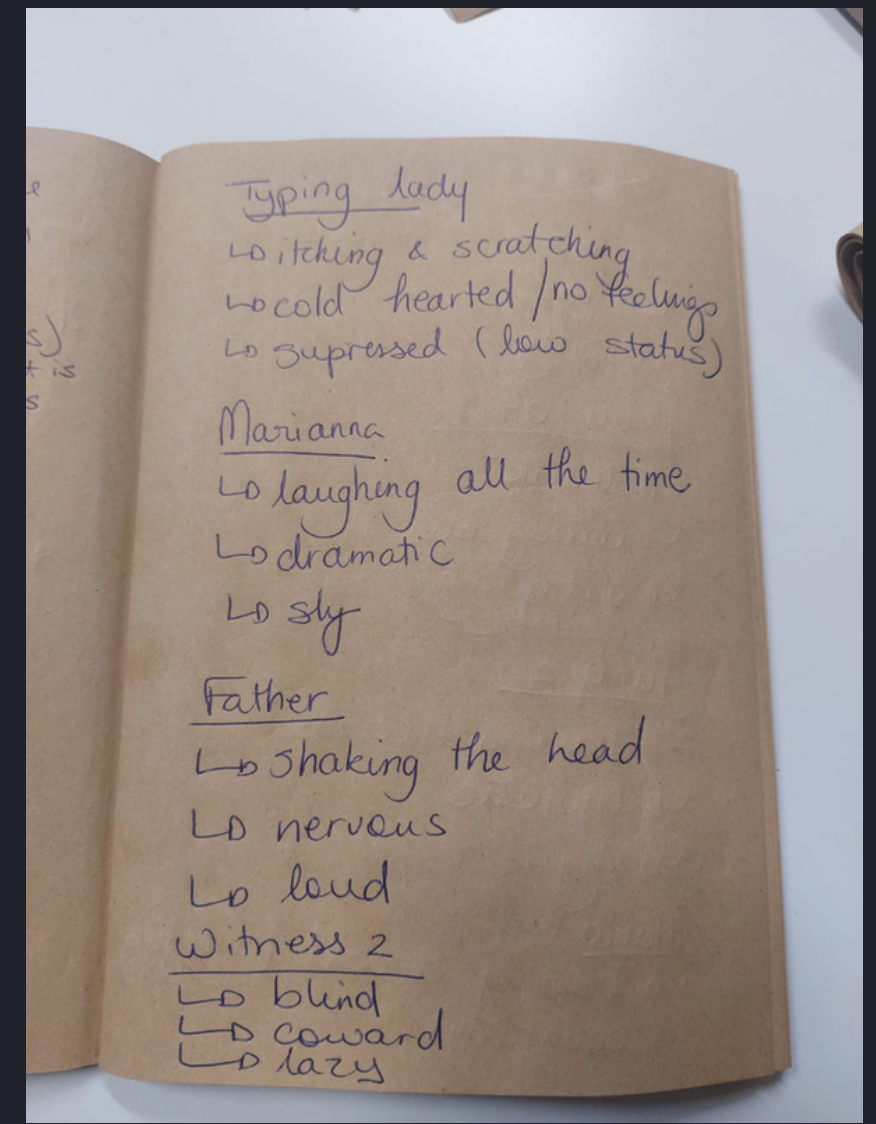 Typing lady
↳ itching & scratching
↳ cold hearted / no feelings
↳ supressed (low status)
Marianna
↳ laughing all the time
↳ dramatic
↳ sly
Father
↳ shaking the head
↳ nervous
↳ loud
Witness 2
↳ blind
↳ coward
↳ lazy